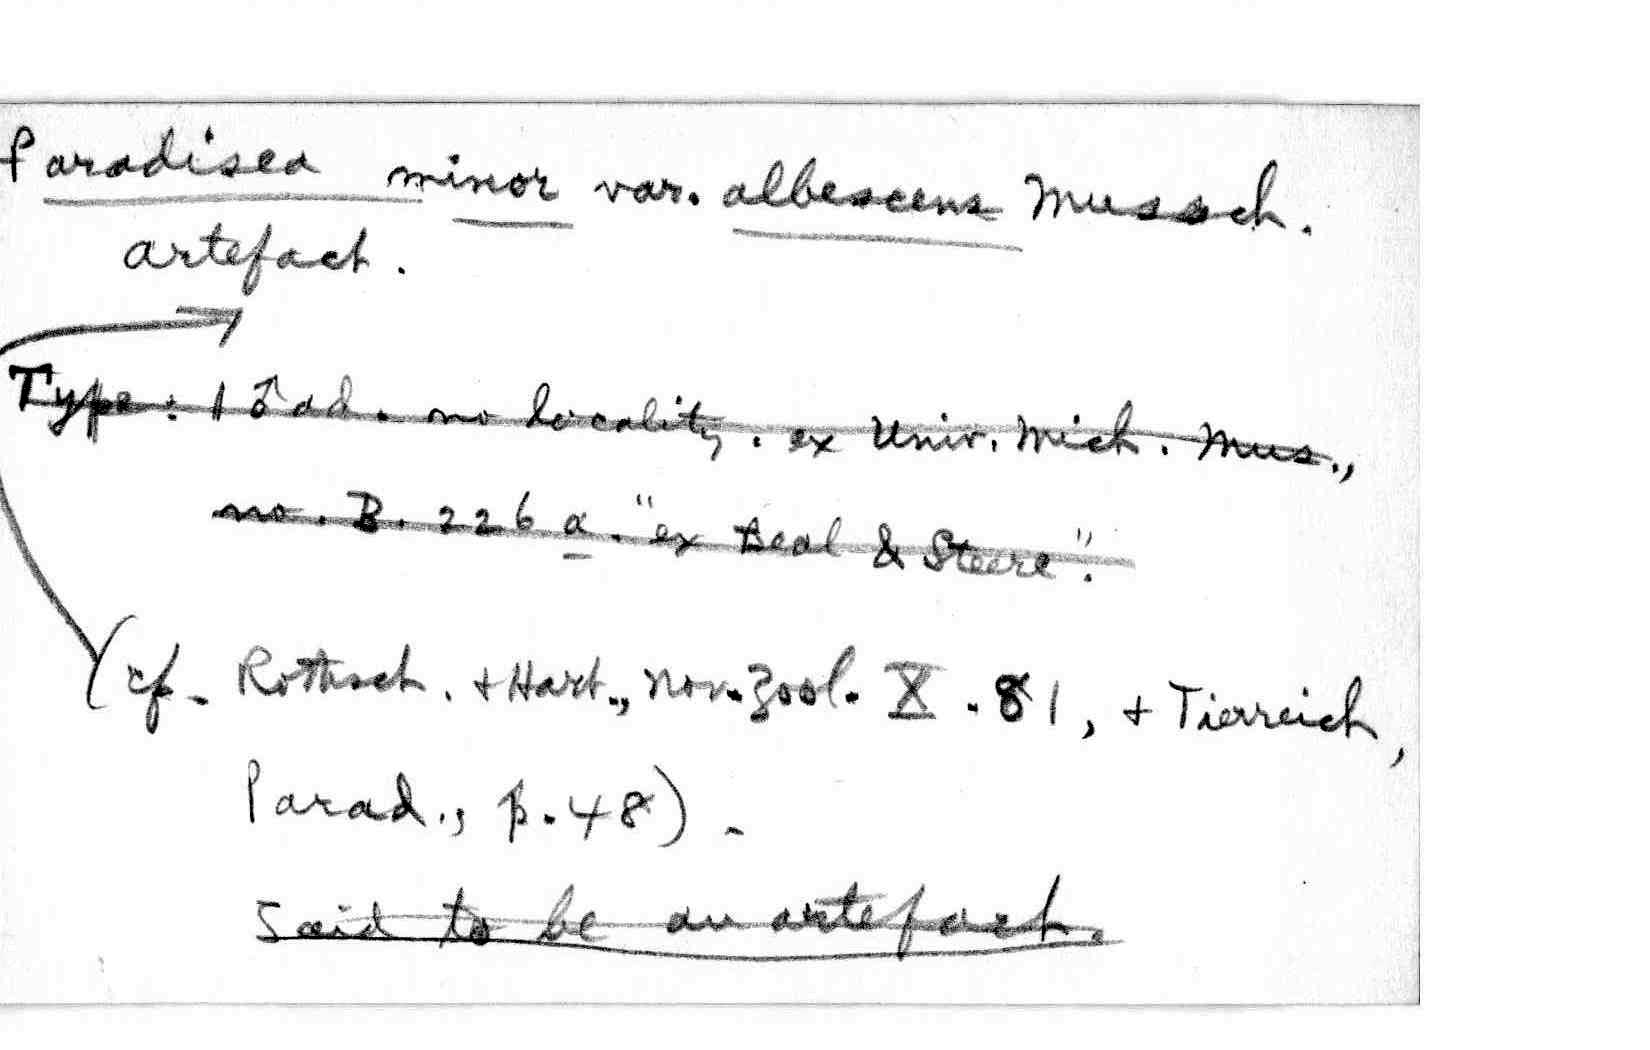 Paradisea minor var. albescens Mussch.
artefact.
Type: 1 ♂ ad. no locality. ex Univ. Mich. Mus.,
no. B. 226 a. "ex Beal & Steere".
(cf. Rothsch. + Hart., Nov. Zool. X. 81, + Tierreich,
Parad., p. 48).
Said to be an artefact.